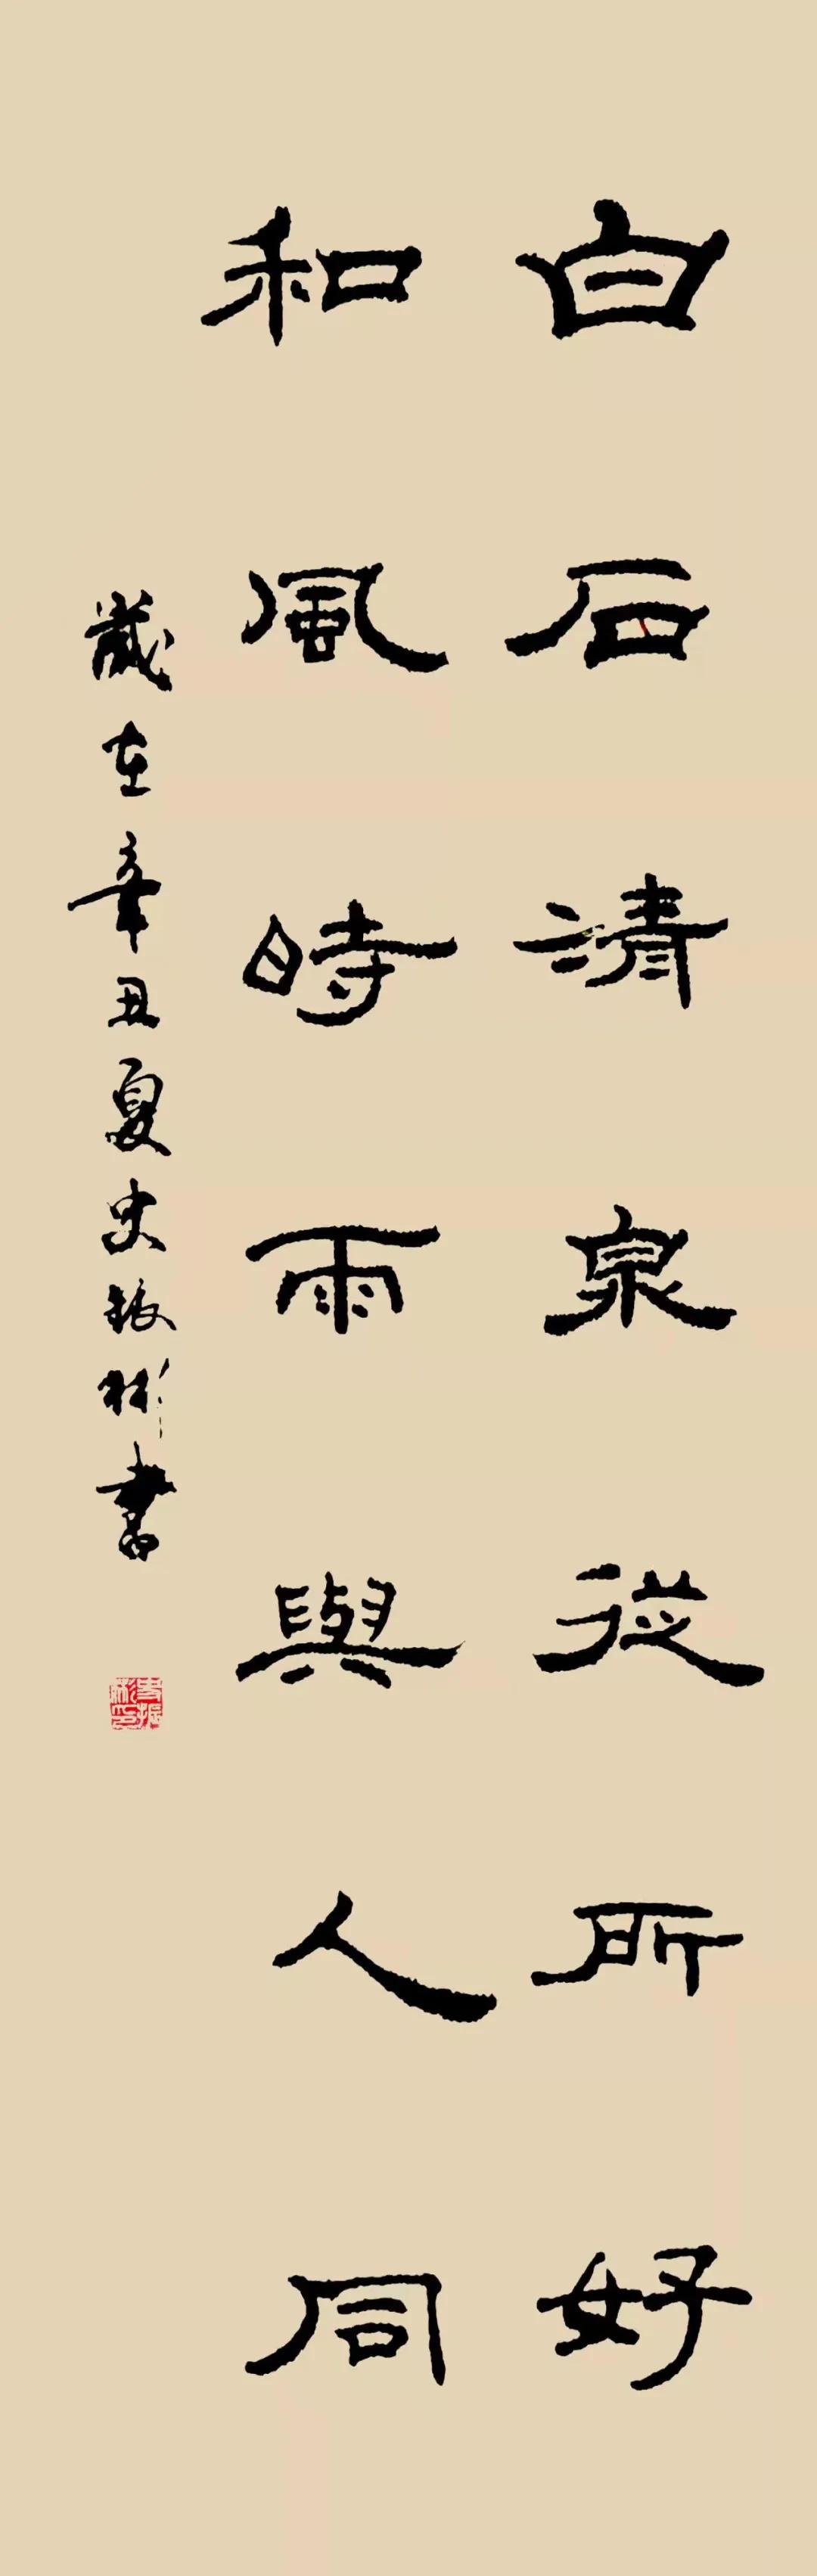 白石清泉從所好
和風時雨與人同
歲在辛丑夏史振彬書
史振彬印